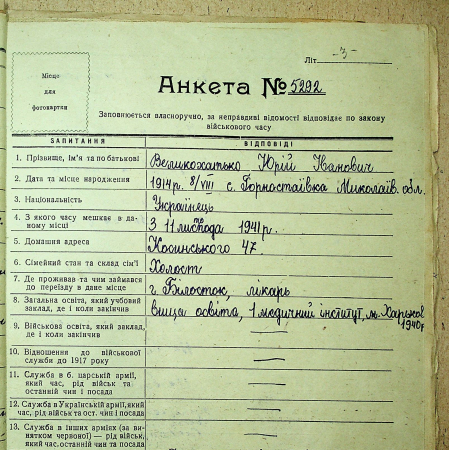 Літ -3-
Місце
для
фотокартки
Анкета № 5292
Заповнюється власноручно, за неправдиві відомості відповідає по закону
військового часу
ЗАПИТАННЯ ВІДПОВІДІ
1. Прізвище, ім'я та по батькові Великохатько Юрій Іванович
2. Дата та місце народження 1914 р. 8/VIII с. Горностаївка Миколаїв. обл.
3. Національність Українець
4. З якого часу мешкає в да-
ному місці З 11 листопада 1941 р.
5. Домашня адреса Косинського 47
6. Сімейний стан та склад сім'ї Холост
7. Де проживав та чим займався
до переїзду в дане місце г. Білосток, лікарь
8. Загальна освіта, який учбовий
заклад, де і коли закінчив вища освіта, 1 медичний інститут, м. Харьков
1940 г
9. Військова освіта, який заклад,
де і коли закінчив —
10. Відношення до військової
служби до 1917 року —
11. Служба в б. царській армії,
який час, рід військ та
останній чин і посада —
12. Служба в Українській армії, який
час, рід військ та ост. чин і посада —
13. Служба в інших арміях (за ви-
нятком червоної) — рід військ,
який час, останній чин та посада —